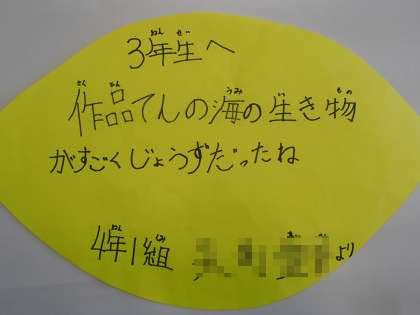 3年生へ
作品てんの海の生き物
がすごくじょうずだったね
4年1組 より